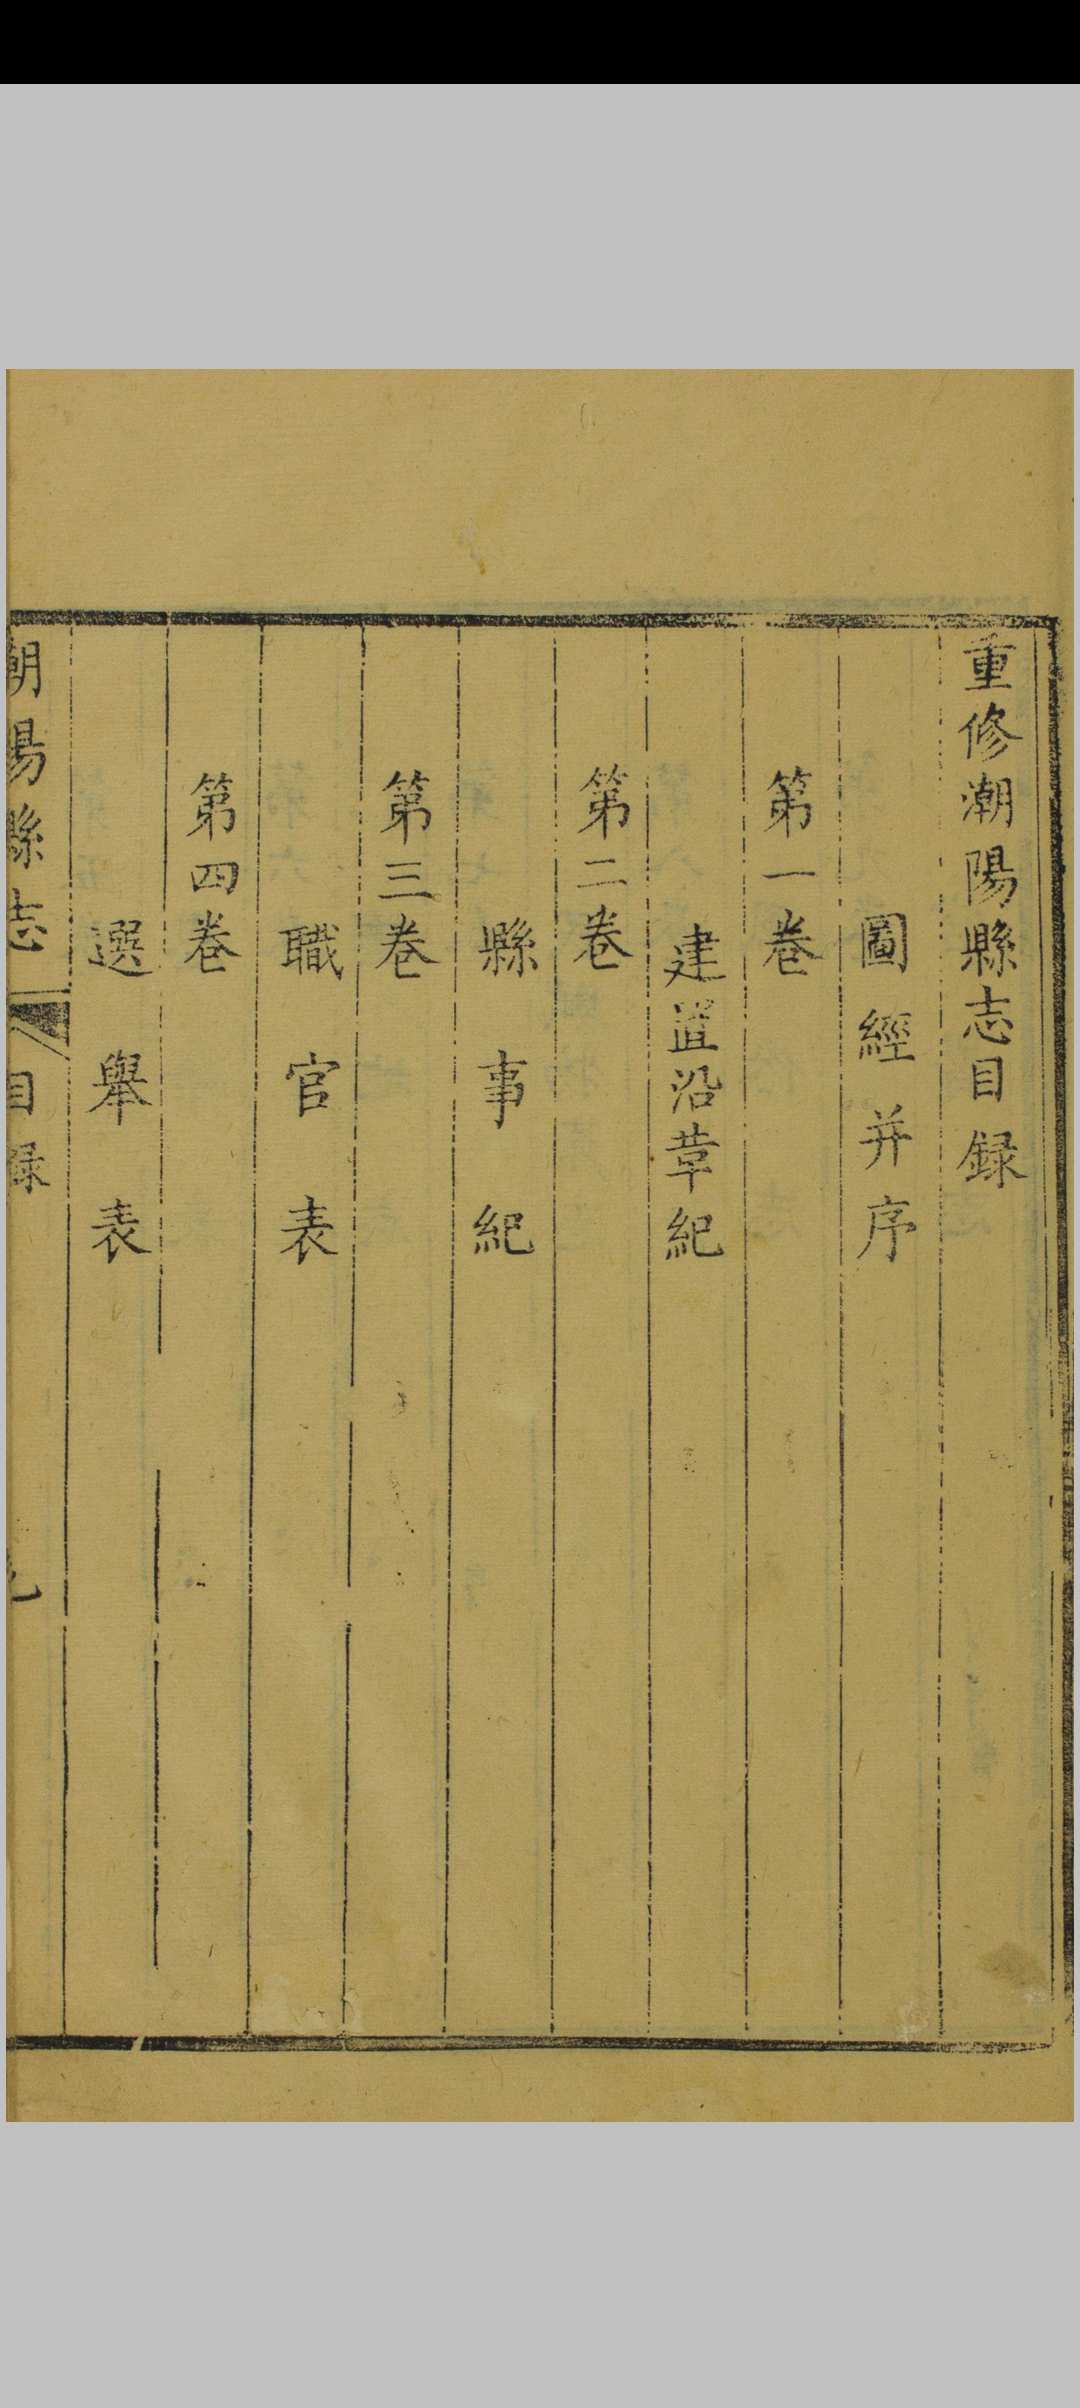 重修潮陽縣志目録
圖經并序
第一卷
建置沿革紀
第二卷
縣事紀
第三卷
職官表
第四卷
選舉表
潮陽縣志 目録